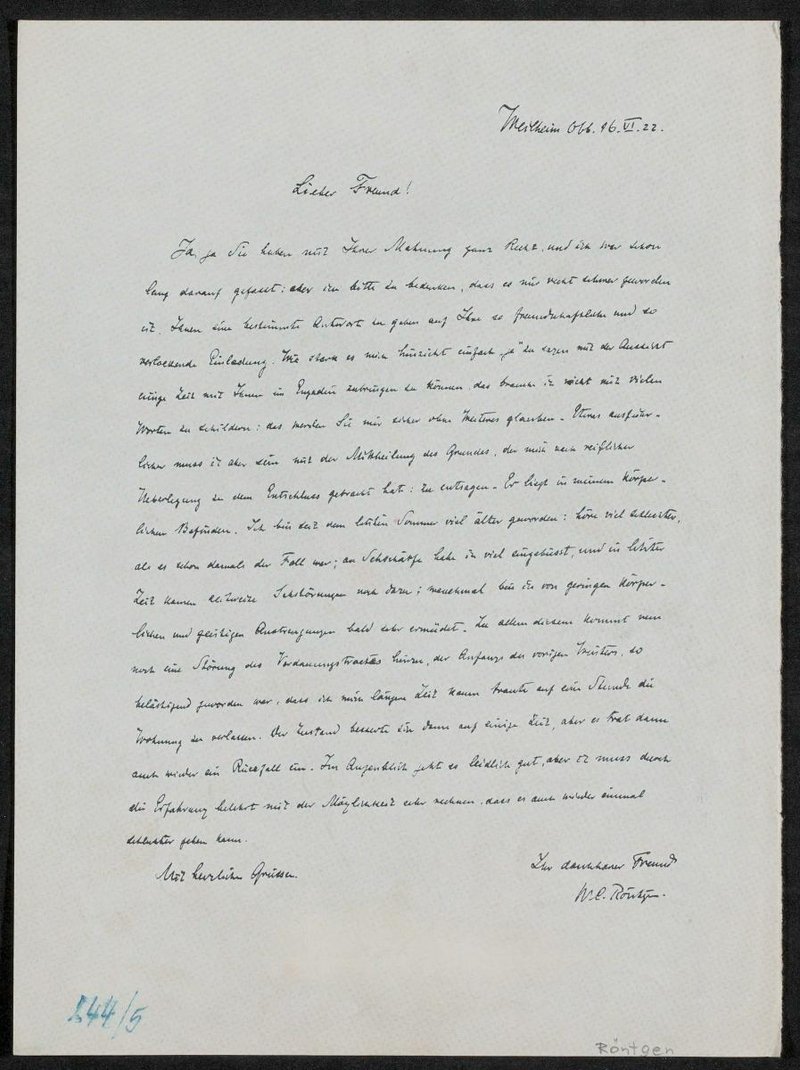 Weilheim Obb. 16.VI.22.
Lieber Freund!
Ja, ja Sie haben mit Ihrer Mahnung ganz Recht, und ich war schon
lang darauf gefasst; aber ich bitte zu bedenken, dass es mir recht schwer geworden
ist, Ihnen eine bestimmte Antwort zu geben auf Ihre so freundschaftliche und so
verlockende Einladung. Wie stark es mich hinzieht einfach „ja" zu sagen mit der Aussicht
einige Zeit mit Ihnen im Engadin zubringen zu können, das brauche ich nicht mit vielen
Worten zu schildern: das werden Sie mir sicher ohne Weiteres glauben. – Etwas ausführ-
licher muss ich aber sein mit der Mittheilung des Grundes, der mich nach reiflicher
Ueberlegung zu dem Entschluss gebracht hat: zu entsagen. – Er liegt in meinem körper-
lichen Befinden. Ich bin seit dem letzten Sommer viel älter geworden: höre viel schlechter,
als es schon damals der Fall war; an Sehschärfe habe ich viel eingebüsst, und in letzter
Zeit kamen zeitweise Sehstörungen noch dazu; manchmal bin ich von geringen körper-
lichen und geistigen Anstrengungen bald sehr ermüdet. Zu allem diesem kommt nun
noch eine Störung des Verdauungstractes hinzu, der Anfangs des vorigen Winters, so
belästigend geworden war, dass ich mich längere Zeit kaum traute auf eine Stunde die
Wohnung zu verlassen. Der Zustand besserte sich dann auf einige Zeit, aber es trat dann
auch wieder ein Rückfall ein. Im Augenblick geht es leidlich gut, aber ich muss durch
die Erfahrung belehrt mit der Möglichkeit sehr rechnen, dass es auch wieder einmal
schlechter gehen kann.
Mit herzlichen Grüssen.
Ihr dankbarer Freund
W. C. Röntgen.
244/5
Röntgen